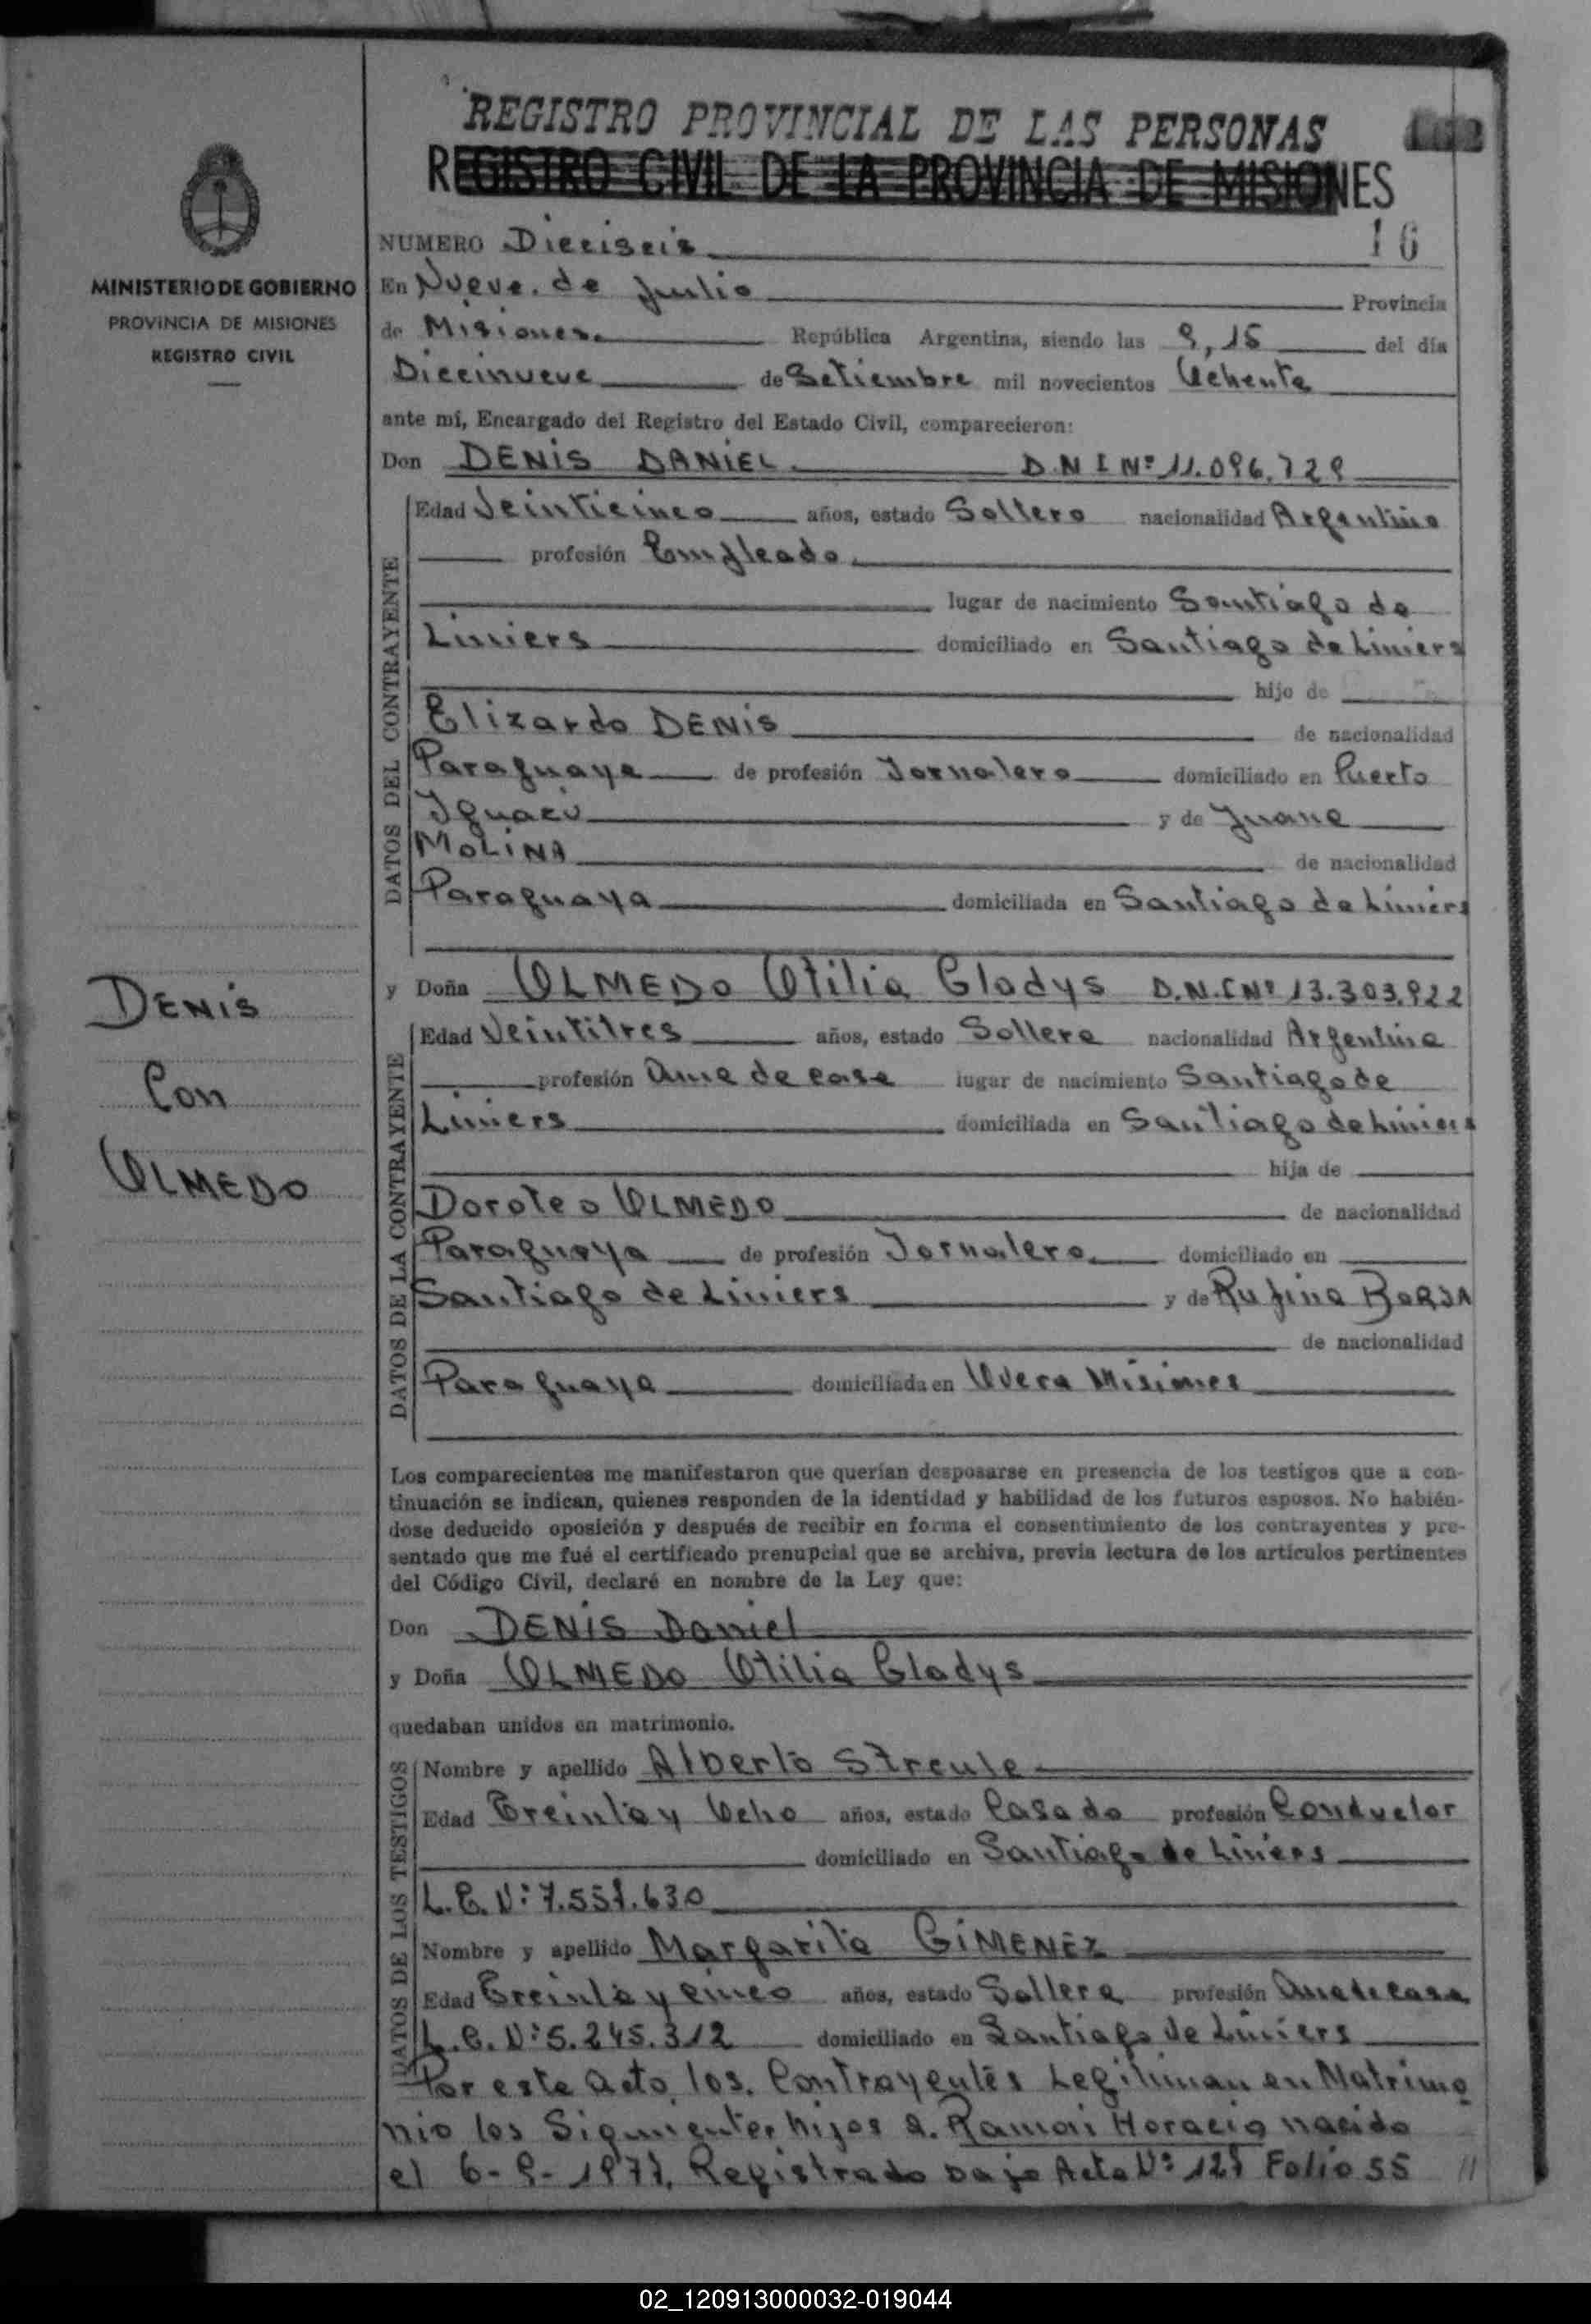 REGISTRO PROVINCIAL DE LAS PERSONAS
REGISTRO CIVIL DE LA PROVINCIA DE MISIONES
MINISTERIO DE GOBIERNO
PROVINCIA DE MISIONES
REGISTRO CIVIL
NUMERO Dieciseis 16
En Nueve de Julio Provincia
de Misiones República Argentina, siendo las 9,15 del día
Diecinueve de Setiembre mil novecientos Ochenta
ante mí, Encargado del Registro del Estado Civil, comparecieron:
Don DENIS DANIEL D.N.I Nº 11.096.729
DATOS DEL CONTRAYENTE
Edad Veinticinco años, estado Soltero nacionalidad Argentino
profesión Empleado
lugar de nacimiento Santiago de
Liniers domiciliado en Santiago de Liniers
hijo de
Elizardo DENIS de nacionalidad
Paraguaya de profesión Jornalero domiciliado en Puerto
Iguazú y de Juana
MOLINA de nacionalidad
Paraguaya domiciliada en Santiago de Liniers
y Doña OLMEDO Otilia Gladys D.N.I Nº 13.303.922
DENIS
Con
OLMEDO
DATOS DE LA CONTRAYENTE
Edad Veintitres años, estado Soltera nacionalidad Argentina
profesión Ama de casa lugar de nacimiento Santiago de
Liniers domiciliada en Santiago de Liniers
hija de
Doroteo OLMEDO de nacionalidad
Paraguaya de profesión Jornalero domiciliado en
Santiago de Liniers y de Rufina BORJA
de nacionalidad
Paraguaya domiciliada en Overa Misiones
Los comparecientes me manifestaron que querían desposarse en presencia de los testigos que a con-
tinuación se indican, quienes responden de la identidad y habilidad de los futuros esposos. No habién-
dose deducido oposición y después de recibir en forma el consentimiento de los contrayentes y pre-
sentado que me fué el certificado prenupcial que se archiva, previa lectura de los artículos pertinentes
del Código Civil, declaré en nombre de la Ley que:
Don DENIS Daniel
y Doña OLMEDO Otilia Gladys
quedaban unidos en matrimonio.
DATOS DE LOS TESTIGOS
Nombre y apellido Alberto Streule
Edad Treinta y Ocho años, estado Casado profesión Conductor
domiciliado en Santiago de Liniers
L.E. Nº 7.557.630
Nombre y apellido Margarita GIMENEZ
Edad Treinta y cinco años, estado Soltera profesión Ama de casa
L.C. Nº 5.245.312 domiciliado en Santiago de Liniers
Por este acto los Contrayentes Legitiman en Matrimo
nio los Siguientes hijos a. Ramon Horacio nacido
el 6-9-1977, Registrado bajo Acta Nº 127 Folio 55 //
02_120913000032-019044